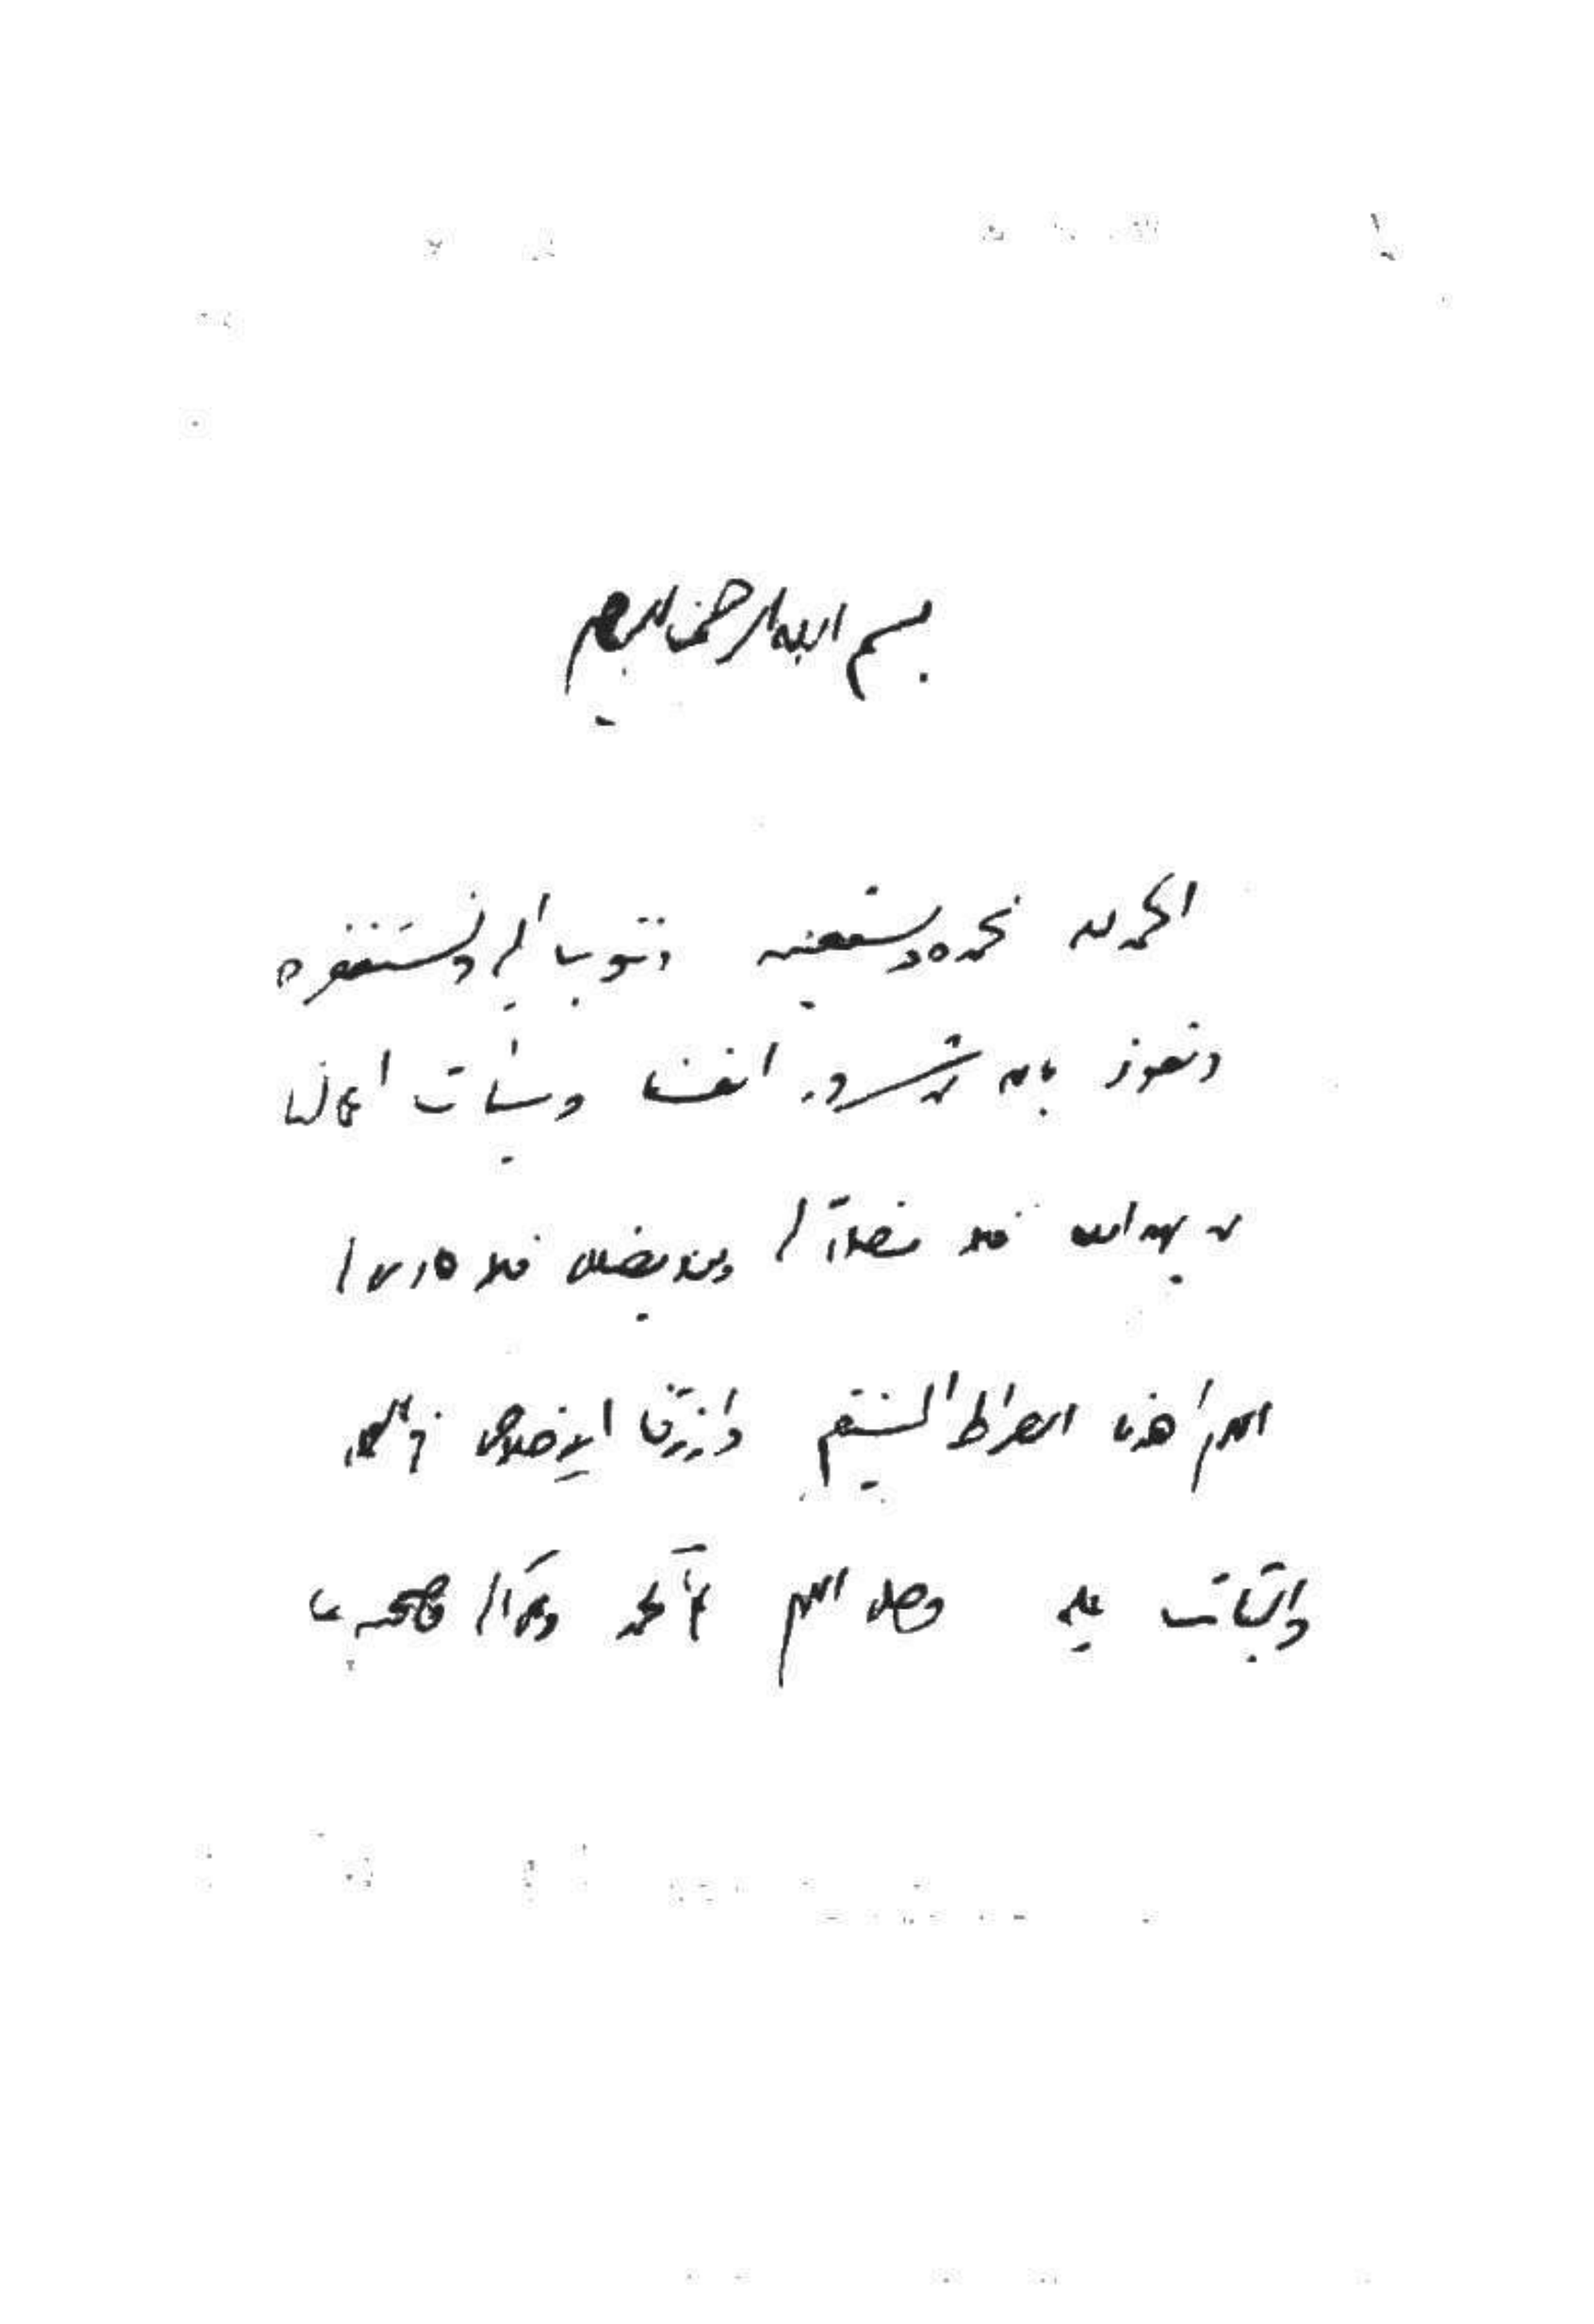 بسم الله الرحمن الرحيم
الحمد لله نحمده ونستعينه ونتوب إليه ونستغفره
ونعوذ بالله من شرور أنفسنا وسيئات أعمالنا
من يهد الله فلا مضل له ومن يضلل فلا هادي له
اللهم اهدنا الصراط المستقيم وارزقنا الإخلاص في
والثبات عليه وصل اللهم على محمد وعلى آله